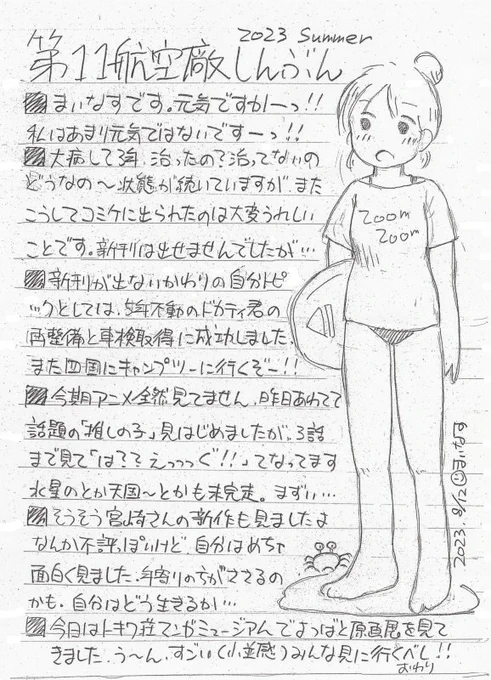 2023 Summer
第11航空廠しんぶん
まいなすです。元気ですかーっ!!
私はあまり元気ではないですーっ!!
大病して3年、治ったの?治ってないの
どうなの〜状態が続いていますが、また
こうしてコミケに出られたのは大変うれしい
ことです。新刊は出せませんでしたが…
新刊が出ないかわりの自分トピ
ックとしては、5年不動のドカティ君の
再整備と車検取得に成功しました、
また四国にキャンプツーに行くぞー!!
今期アニメ全然見てません、昨日あわてて
話題の「推しの子」見はじめましたが、3話
まで見て「は??えっっっぐ!!」てなってます
水星のとか天国〜とかも未完走。まずい…
そうそう宮崎さんの新作も見ましたよ
なんか不評っぽいけど、自分はめちゃ
面白く見ました、年寄りの方がささるの
かも・自分はどう生きるか…
今日はトキワ荘マンガミュージアムでよつばと原画展を見て
きました、う〜ん、すごい(小並感)みんな見に行くべし!!
おわり
Zoom
Zoom
2023.8/12 まいなす